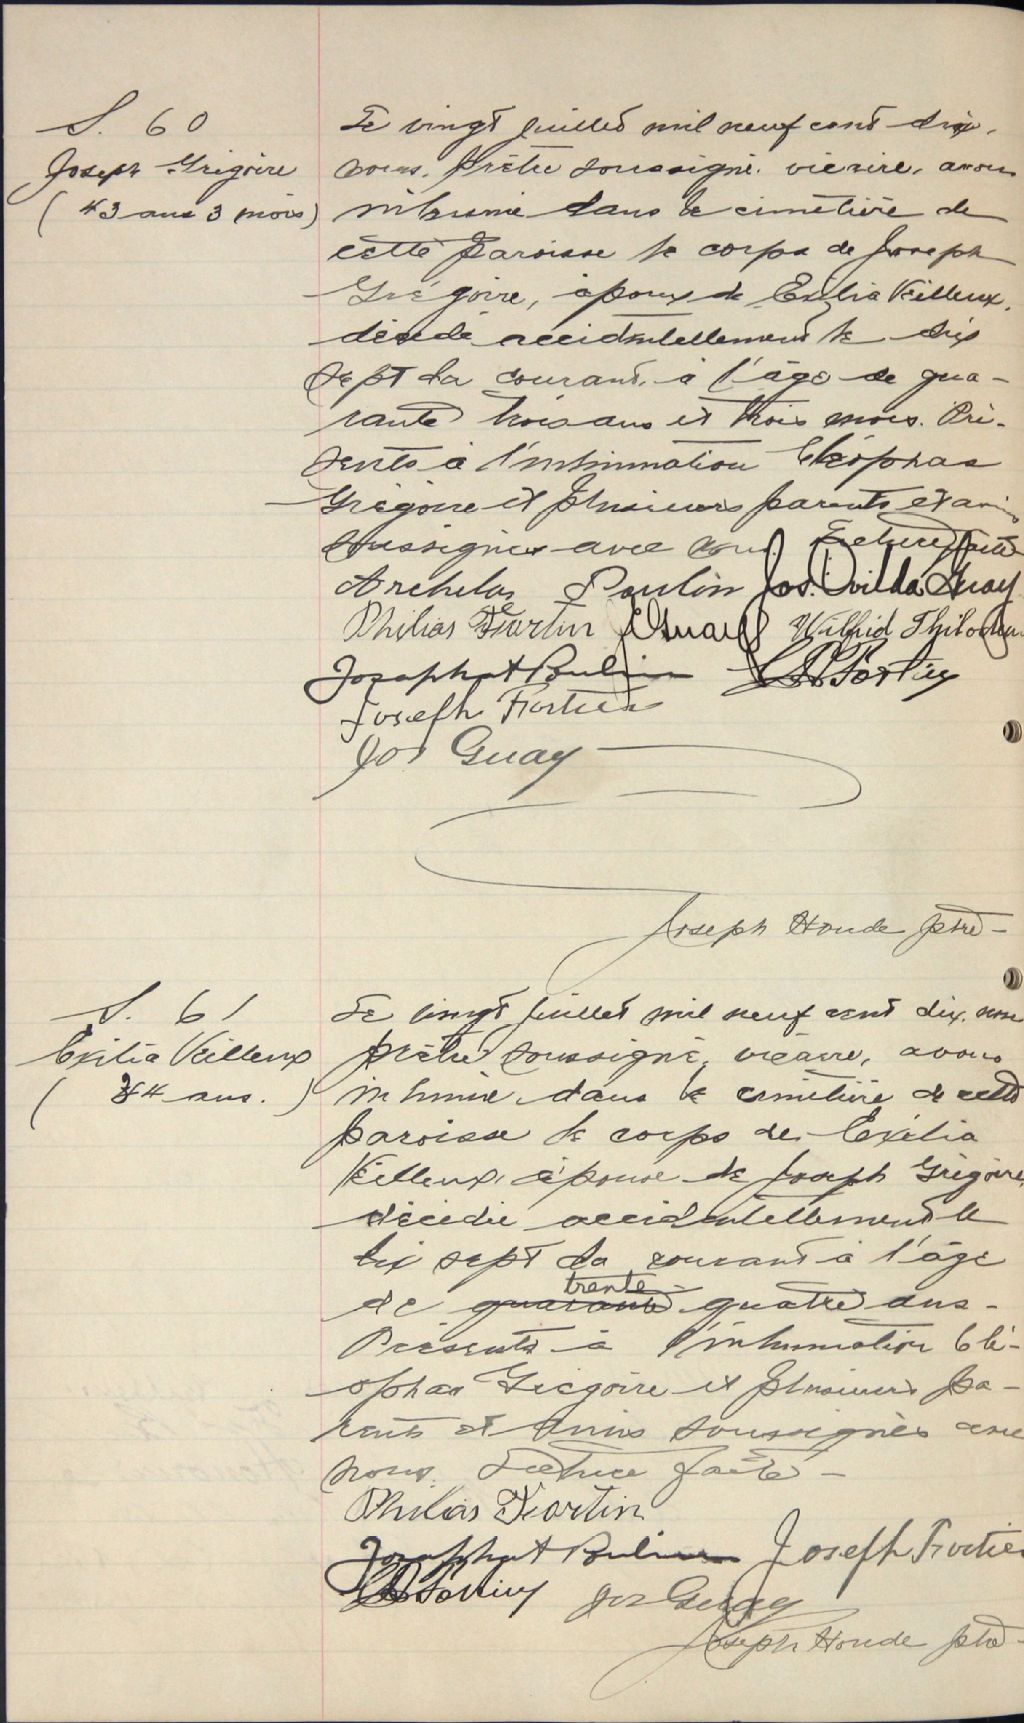 S. 60
Joseph Grégoire
(43 ans 3 mois)
Le vingt juillet mil neuf cent dix,
nous, prêtre soussigné, vicaire, avons
inhumé dans le cimetière de
cette paroisse le corps de Joseph
Grégoire, époux de Exilia Veilleux,
décédé accidentellement le dix
sept du courant, à l'âge de qua-
rante trois ans et trois mois. Pré-
sents à l'inhumation Cléophas
Grégoire et plusieurs parents et amis
soussignés avec nous. Lecture faite
Archelas Poulin Jos. Ovilda Guay
Philias Fortin Guay Wilfrid Thibodeau
Josaphat Poulin Fortier
Joseph Fortier
Jos Guay
Joseph Houde ptre
S. 61
Exilia Veilleux
(34 ans.)
Le vingt juillet mil neuf cent dix, nous
prêtre soussigné, vicaire, avons
inhumé dans le cimetière de cette
paroisse le corps de Exilia
Veilleux, épouse de Joseph Grégoire,
décédée accidentellement le
dix sept du courant à l'âge
trente
de quarante quatre ans.
Présents à l'inhumation Clé-
ophas Grégoire et plusieurs pa-
rents et amis soussignés avec
nous. Lecture faite
Philias Fortin
Josaphat Poulin Joseph Fortier
Fortier Jos Guay
Joseph Houde ptre